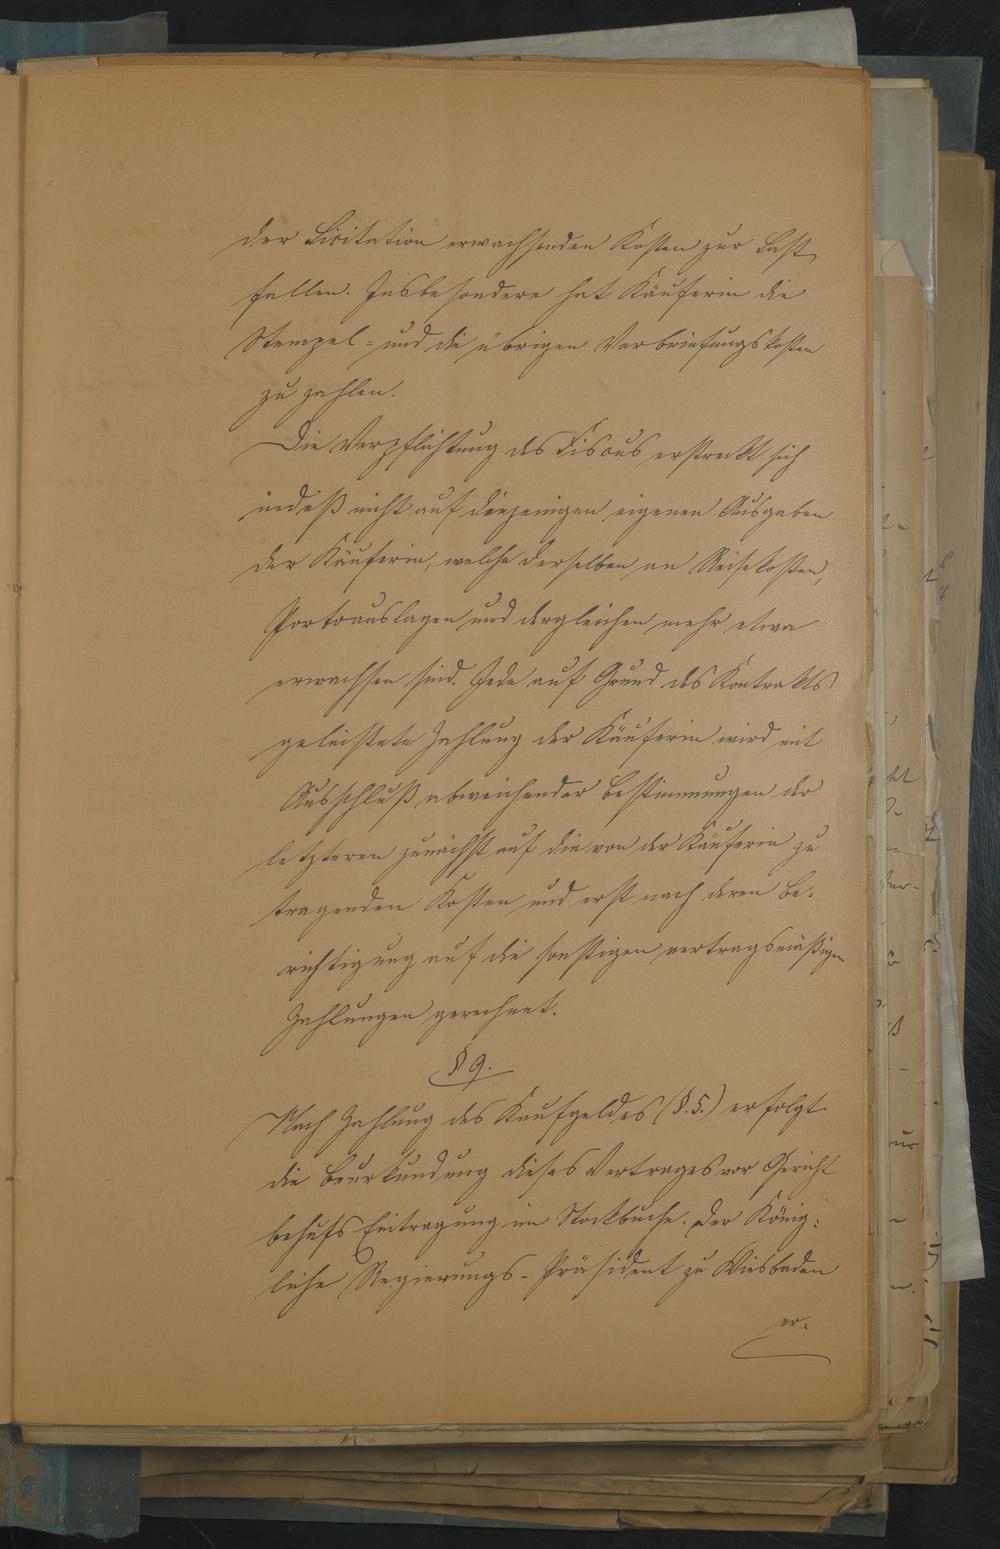 der Licitation erwachsenden Kosten zur Last
fallen. Insbesondere hat Käuferin die
Stempel- und die übrigen Verbriefungskosten
zu zahlen.
Die Verpflichtung des Fiscus erstreckt sich
indeß nicht auf diejenigen eigenen Ausgaben
der Käuferin, welche derselben an Reisekosten,
Portoauslagen und dergleichen mehr etwa
erwachsen sind. Jede auf Grund des Kontrakts
geleistete Zahlung der Käuferin wird mit
Ausschluß abweichender Bestimmungen der
letzteren zunächst auf die von der Käuferin zu
tragenden Kosten und erst nach deren Be-
richtigung auf die sonstigen vertragsmäßigen
Zahlungen gerechnet.
§ 9.
Nach Zahlung des Kaufgeldes (§. 5.) erfolgt
die Beurkundung dieses Vertrages vor Gericht
behufs Eintragung im Stockbuche. Der König-
liche Regierungs-Präsident zu Wiesbaden
er-